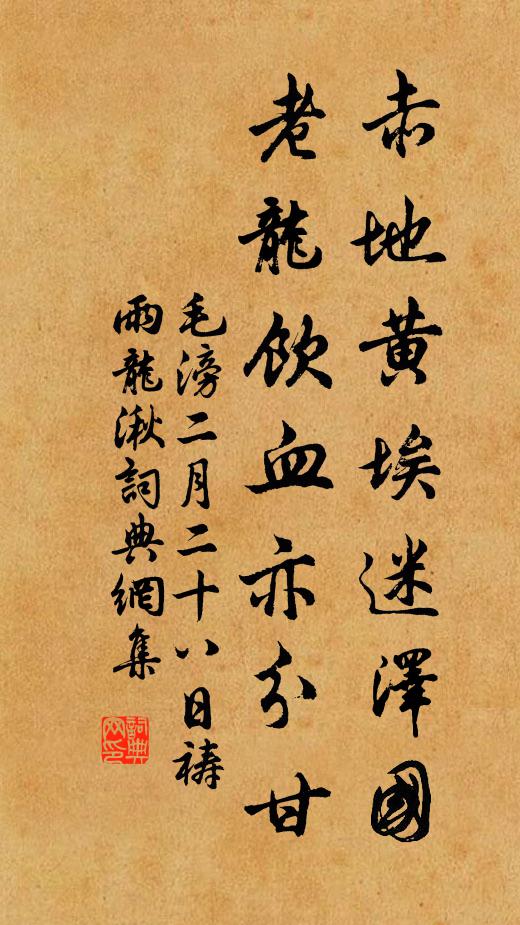 赤地黄埃迷澤國
老龍飲血亦分甘
毛滂二月二十八日禱
雨龍湫詞典網集
詞典
网印